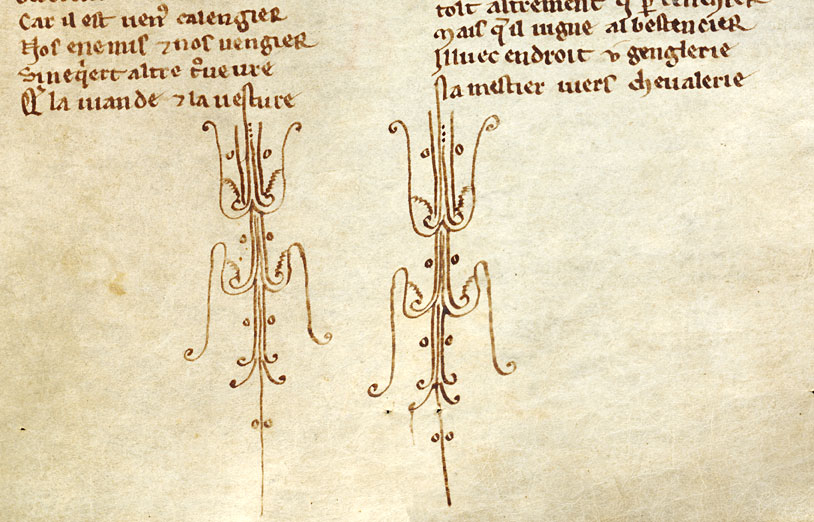 Car il est uen9 calengier
Nos enemis ⁊ nos uengier
Si neq̃ert altre cõueure
Q̃ la uiande ⁊ la uesture
tolt altrement q̃
Mais q̃ il iuigue al bestencier
Illuec endroit v genglerie
Na mestier uiers cheualerie